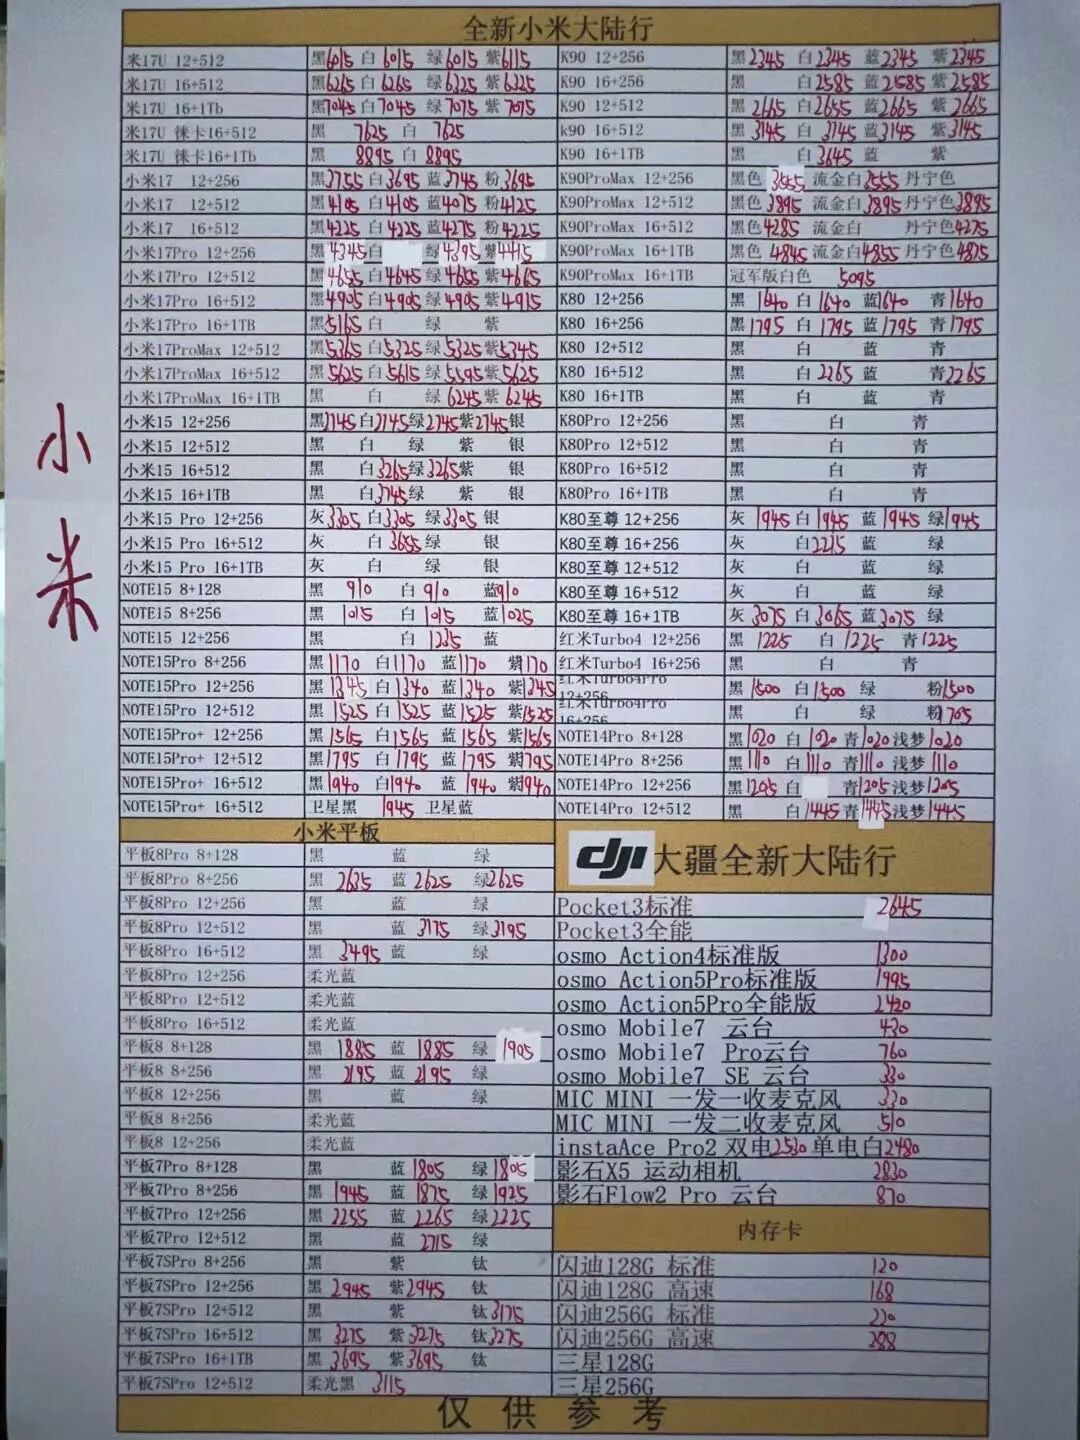 全新小米大陆行
米17U 12+512 黑6015 白6015 绿6015 紫6115
米17U 16+512 黑6265 白6265 绿6325 紫6325
米17U 16+1Tb 黑7045 白7045 绿7075 紫7075
米17U 徕卡16+512 黑 7625 白 7625
米17U 徕卡16+1Tb 黑 8895 白 8895
小米17 12+256 黑3755 白3695 蓝3745 粉3695
小米17 12+512 黑4105 白4105 蓝4075 粉4125
小米17 16+512 黑4225 白4225 蓝4275 粉4225
小米17Pro 12+256 黑4345 白 绿4395 紫4415
小米17Pro 12+512 黑4655 白4645 绿4655 紫4665
小米17Pro 16+512 黑4905 白4905 绿4905 紫4915
小米17Pro 16+1TB 黑5165 白 绿 紫
小米17ProMax 12+512 黑5365 白5325 绿5325 紫5345
小米17ProMax 16+512 黑5625 白5615 绿5595 紫5625
小米17ProMax 16+1TB 黑 白 绿6245 紫6245
小米15 12+256 黑2745 白2745 绿2745 紫2745 银
小米15 12+512 黑 白 绿 紫 银
小米15 16+512 黑 白3265 绿3265 紫 银
小米15 16+1TB 黑 白3745 绿 紫 银
小米15 Pro 12+256 灰3305 白3305 绿3305 银
小米15 Pro 16+512 灰 白3655 绿 银
小米15 Pro 16+1TB 灰 白 绿 银
NOTE15 8+128 黑 910 白 910 蓝910
NOTE15 8+256 黑 1015 白 1015 蓝1025
NOTE15 12+256 黑 白 1235 蓝
NOTE15Pro 8+256 黑1170 白1170 蓝1170 紫1170
NOTE15Pro 12+256 黑1345 白1340 蓝1340 紫1345
NOTE15Pro 12+512 黑1525 白1525 蓝1525 紫1525
NOTE15Pro+ 12+256 黑1565 白1565 蓝1565 紫1565
NOTE15Pro+ 12+512 黑1795 白1795 蓝1795 紫1795
NOTE15Pro+ 16+512 黑1940 白1940 蓝1940 紫1940
NOTE15Pro+ 16+512 卫星黑 1945 卫星蓝
K90 12+256 黑2345 白2345 蓝2345 紫2345
K90 16+256 黑 白2585 蓝2585 紫2585
K90 12+512 黑2665 白2655 蓝2665 紫2665
k90 16+512 黑3145 白3145 蓝3145 紫3145
K90 16+1TB 黑 白3645 蓝 紫
K90ProMax 12+256 黑色 3555 流金白3555 丹宁色
K90ProMax 12+512 黑色3895 流金白3895 丹宁色3895
K90ProMax 16+512 黑色4285 流金白 丹宁色4275
K90ProMax 16+1TB 黑色 4845 流金白4855 丹宁色4875
K90ProMax 16+1TB 冠军版白色 5095
K80 12+256 黑1640 白1640 蓝1640 青1640
K80 16+256 黑1795 白1795 蓝1795 青1795
K80 12+512 黑 白 蓝 青
K80 16+512 黑 白2265 蓝 青2265
K80 16+1TB 黑 白 蓝 青
K80Pro 12+256 黑 白 青
K80Pro 12+512 黑 白 青
K80Pro 16+512 黑 白 青
K80Pro 16+1TB 黑 白 青
K80至尊 12+256 灰1945 白1945 蓝1945 绿1945
K80至尊 16+256 灰 白2215 蓝 绿
K80至尊 12+512 灰 白 蓝 绿
K80至尊 16+512 灰 白 蓝 绿
K80至尊 16+1TB 灰3075 白3065 蓝3075 绿
红米Turbo4 12+256 黑 1225 白1225 青1225
红米Turbo4 16+256 黑 白 青
红米Turbo4Pro 12+256 黑1500 白1500 绿 粉1500
红米Turbo4Pro 16+256 黑 白 绿 粉1705
NOTE14Pro 8+128 黑1020 白1020 青1020 浅梦1020
NOTE14Pro 8+256 黑1110 白1110 青1110 浅梦1110
NOTE14Pro 12+256 黑1205 白 青1205 浅梦1205
NOTE14Pro 12+512 黑 白1445 青1445 浅梦1445
小米
小米平板
平板8Pro 8+128 黑 蓝 绿
平板8Pro 8+256 黑 2635 蓝 2625 绿2625
平板8Pro 12+256 黑 蓝 绿
平板8Pro 12+512 黑 蓝 3175 绿3195
平板8Pro 16+512 黑 3495 蓝 绿
平板8Pro 12+256 柔光蓝
平板8Pro 12+512 柔光蓝
平板8Pro 16+512 柔光蓝
平板8 8+128 黑 1885 蓝 1885 绿 1905
平板8 8+256 黑 2195 蓝 2195 绿
平板8 12+256 黑 蓝 绿
平板8 8+256 柔光蓝
平板8 12+256 柔光蓝
平板7Pro 8+128 黑 蓝1805 绿1805
平板7Pro 8+256 黑 1945 蓝 1875 绿1925
平板7Pro 12+256 黑 2255 蓝 2265 绿2225
平板7Pro 12+512 黑 蓝 2715 绿
平板7SPro 8+256 黑 紫 钛
平板7SPro 12+256 黑 2945 紫2945 钛
平板7SPro 12+512 黑 紫 钛3175
平板7SPro 16+512 黑 3275 紫3275 钛3275
平板7SPro 16+1TB 黑 3695 紫3695 钛
平板7SPro 12+512 柔光黑 3115
dji 大疆全新大陆行
Pocket3标准 2645
Pocket3全能
osmo Action4标准版 1300
osmo Action5Pro标准版 1995
osmo Action5Pro全能版 2420
osmo Mobile7 云台 430
osmo Mobile7 Pro云台 760
osmo Mobile7 SE 云台 330
MIC MINI 一发一收麦克风 330
MIC MINI 一发二收麦克风 510
instaAce Pro2 双电2530 单电白2480
影石X5 运动相机 2830
影石Flow2 Pro 云台 870
内存卡
闪迪128G 标准 120
闪迪128G 高速 168
闪迪256G 标准 220
闪迪256G 高速 288
三星128G
三星256G
仅供参考